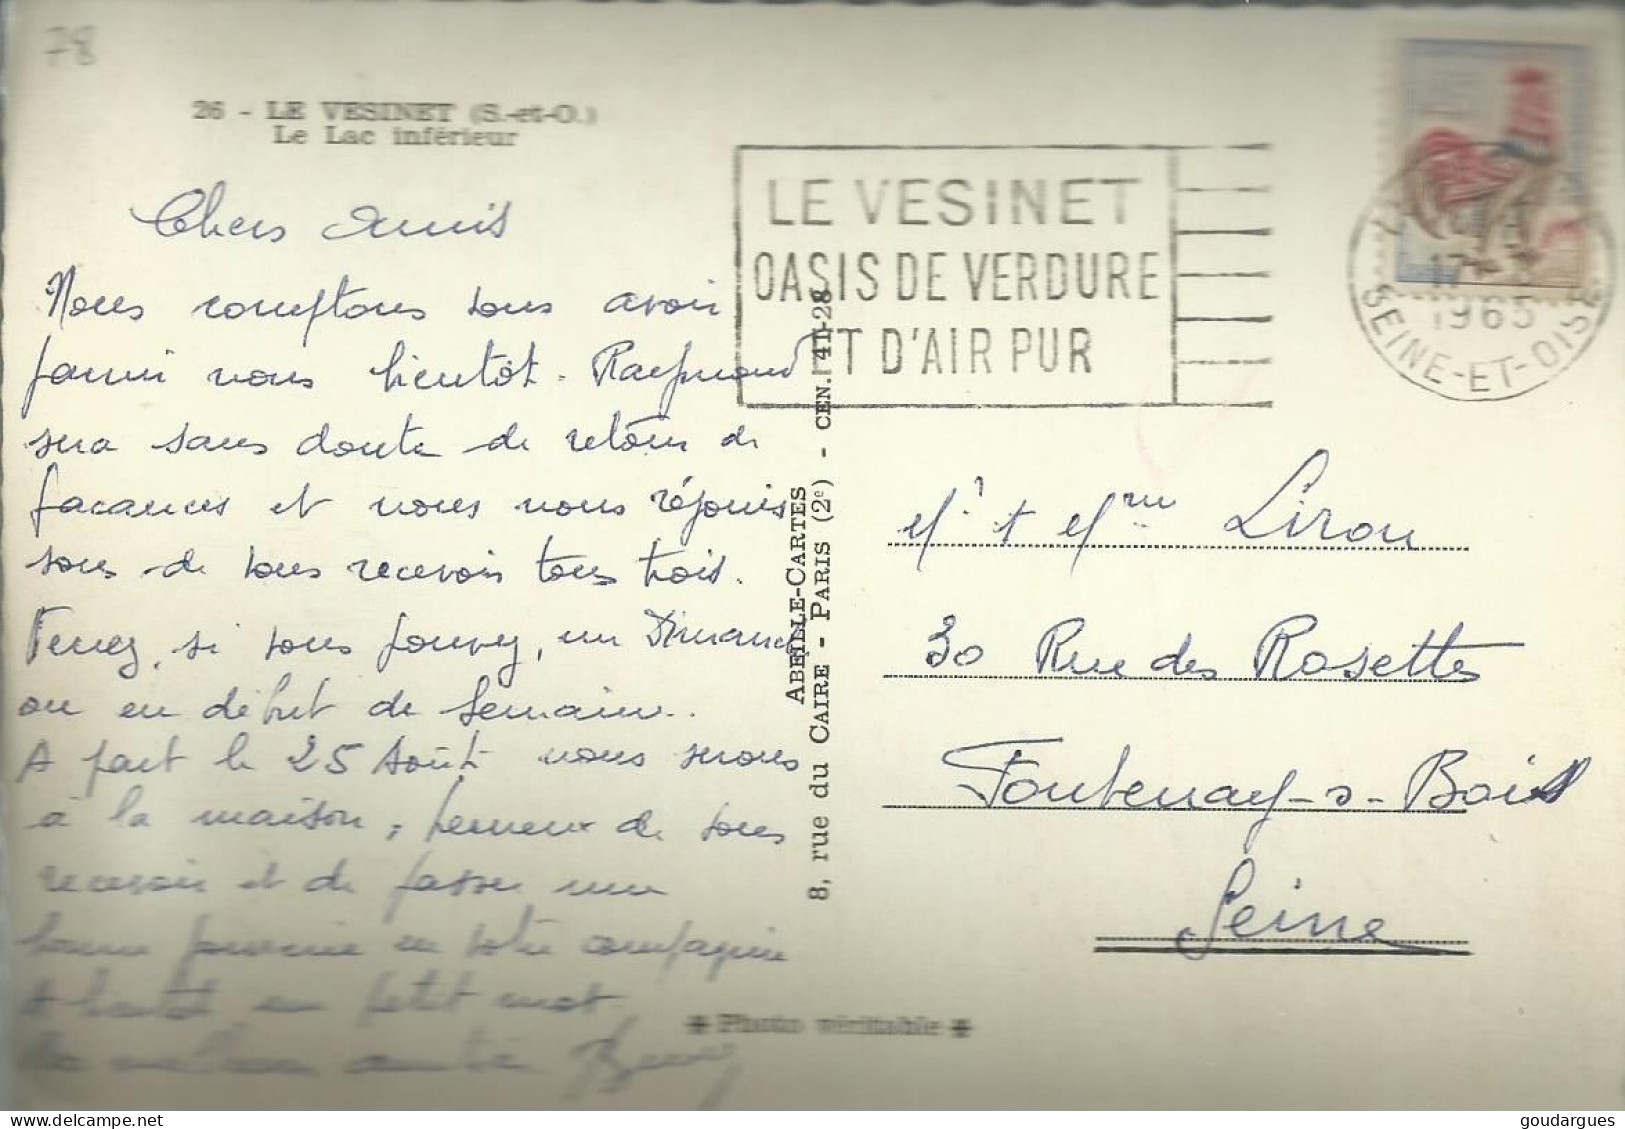 78
26 - LE VESINET (S.-et-O.)
Le Lac inférieur
Chers Amis
Nous comptons vous avoir
parmi nous bientôt. Raymond
sera sans doute de retour de
vacances et nous nous réjouis
sons de vous recevoir tous trois.
Venez, si vous pouvez, un Dimanche
ou en début de semaine.
A part le 25 Août nous serons
à la maison, heureux de vous
recevoir et de passer une
bonne journée en votre compagnie
A bientôt un petit mot.
amitié
LE VESINET
OASIS DE VERDURE
ET D'AIR PUR
17
1965
SEINE-ET-OISE
ABEILLE-CARTES
8, rue du CAIRE - PARIS (2e) - CEN. 41-28
Mr + Mme Lirou
30 Rue des Rosettes
Fontenay-s-Bois
Seine
Photo véritable
goudargues